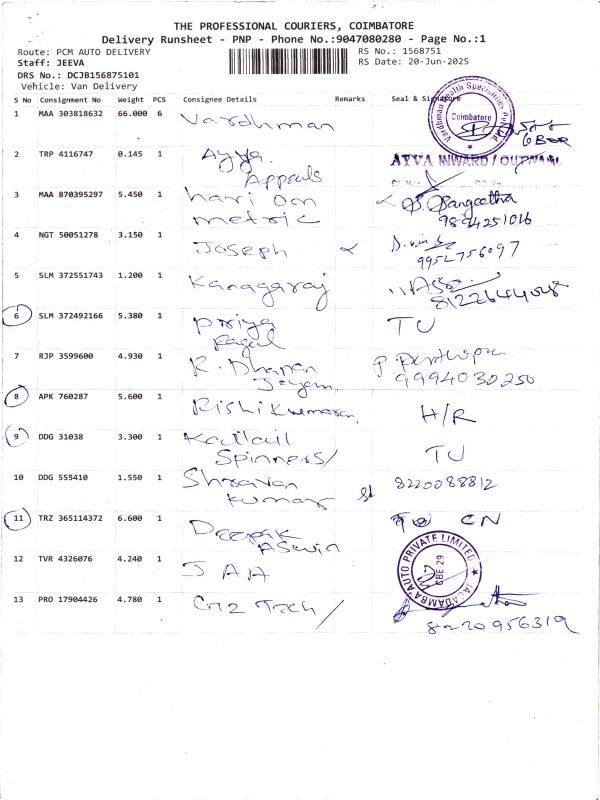 THE PROFESSIONAL COURIERS, COIMBATORE
Delivery Runsheet - PNP - Phone No.:9047080280 - Page No.:1
Route: PCM AUTO DELIVERY
RS No.: 1568751
Staff: JEEVA
RS Date: 20-Jun-2025
DRS No.: DCJB156875101
Vehicle: Van Delivery
S No Consignment No Weight PCS Consignee Details Remarks Seal & Signature
1 MAA 303818632 66.000 6 Vardhman
Vardhman Health Specialities
Coimbatore
6 BOR
2 TRP 4116747 0.145 1 Ayya
Appeals
AYYA INWARD / OUTWARD
3 MAA 870395297 5.450 1 hari om
metric
S. Sangeetha
9894251016
4 NGT 50051278 3.150 1 Joseph
9952756097
5 SLM 372551743 1.200 1 Kanagaraj
6 SLM 372492166 5.380 1 Priya
TU
7 RJP 3599600 4.930 1 R. Dhanan
Jeyam.
9994030250
8 APK 760287 5.600 1 Rishikumaran,
H/R
9 DDG 31038 3.300 1
Spinners/
TU
10 DDG 555410 1.550 1 Shravan
kumar
8220088812
11 TRZ 365114372 6.600 1 Deepak
Aswin
CN
12 TVR 4326076 4.240 1 JAA
JAGADAMBA AUTO PRIVATE LIMITED
CBE.29
13 PRO 17904426 4.780 1 G12 Tech/
8220956319